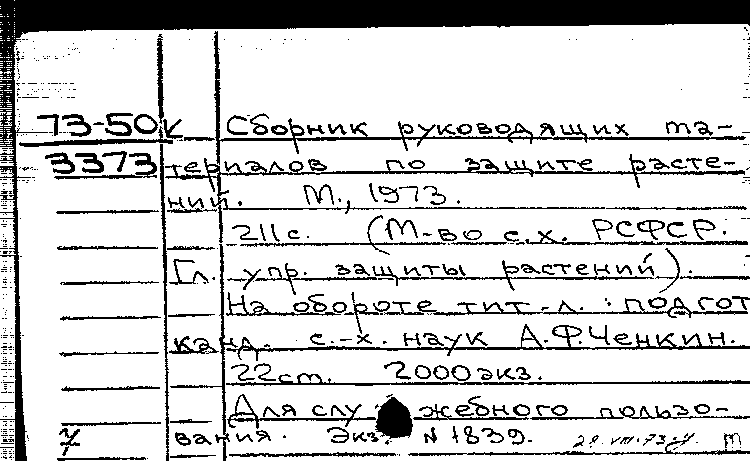 73-50 Сборник руководящих ма-
3373 териалов по защите расте-
ний. М., 1973.
211с. (М-во с.х. РСФСР.
Гл. упр. защиты растений).
На обороте тит.л.: подгот
канд. с.-х. наук А.Ф.Ченкин.
22см. 2000экз.
Для служебного пользо-
вания. Экз. N 1839.